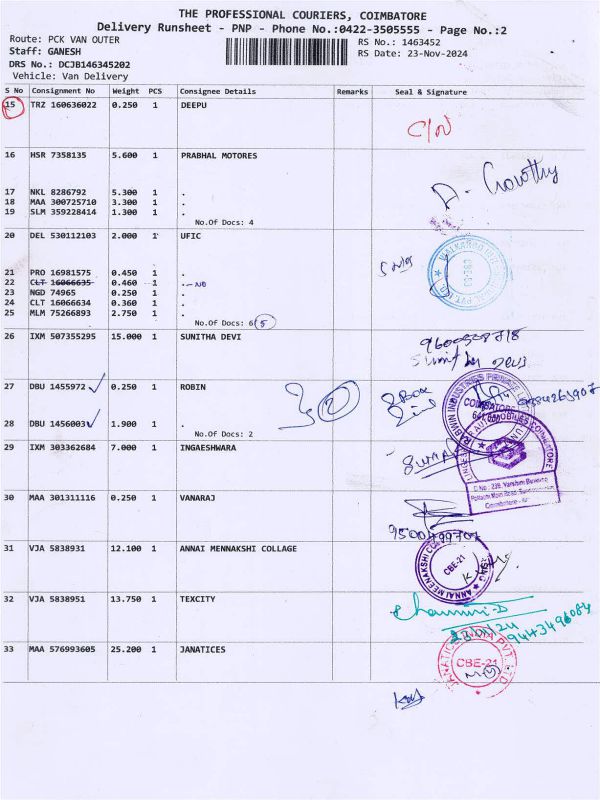 THE PROFESSIONAL COURIERS, COIMBATORE
Delivery Runsheet - PNP - Phone No.:0422-3505555 - Page No.:2
Route: PCK VAN OUTER
RS No.: 1463452
Staff: GANESH
RS Date: 23-Nov-2024
DRS No.: DCJB146345202
Vehicle: Van Delivery
S No Consignment No Weight PCS Consignee Details Remarks Seal & Signature
15 TRZ 160636022 0.250 1 DEEPU
C/N
16 HSR 7358135 5.600 1 PRABHAL MOTORES
17 NKL 8286792 5.300 1 .
18 MAA 300725710 3.300 1 .
19 SLM 359228414 1.300 1 .
No.Of Docs: 4
20 DEL 530112103 2.000 1 UFIC
21 PRO 16981575 0.450 1 .
22 CLT 16066635 0.460 1 .-NO
23 NGD 74965 0.250 1 .
24 CLT 16066634 0.360 1 .
25 MLM 75266893 2.750 1 .
No.Of Docs: 6 5
CBE-03
26 IXM 507355295 15.000 1 SUNITHA DEVI
27 DBU 1455972 0.250 1 ROBIN
2
28 DBU 1456003 1.900 1 .
No.Of Docs: 2
COIMBATORE
29 IXM 303362684 7.000 1 INGAESHWARA
30 MAA 301311116 0.250 1 VANARAJ
9500499707
31 VJA 5838931 12.100 1 ANNAI MENNAKSHI COLLAGE
CBE-21
32 VJA 5838951 13.750 1 TEXCITY
9443496084
33 MAA 576993605 25.200 1 JANATICES
CBE-21